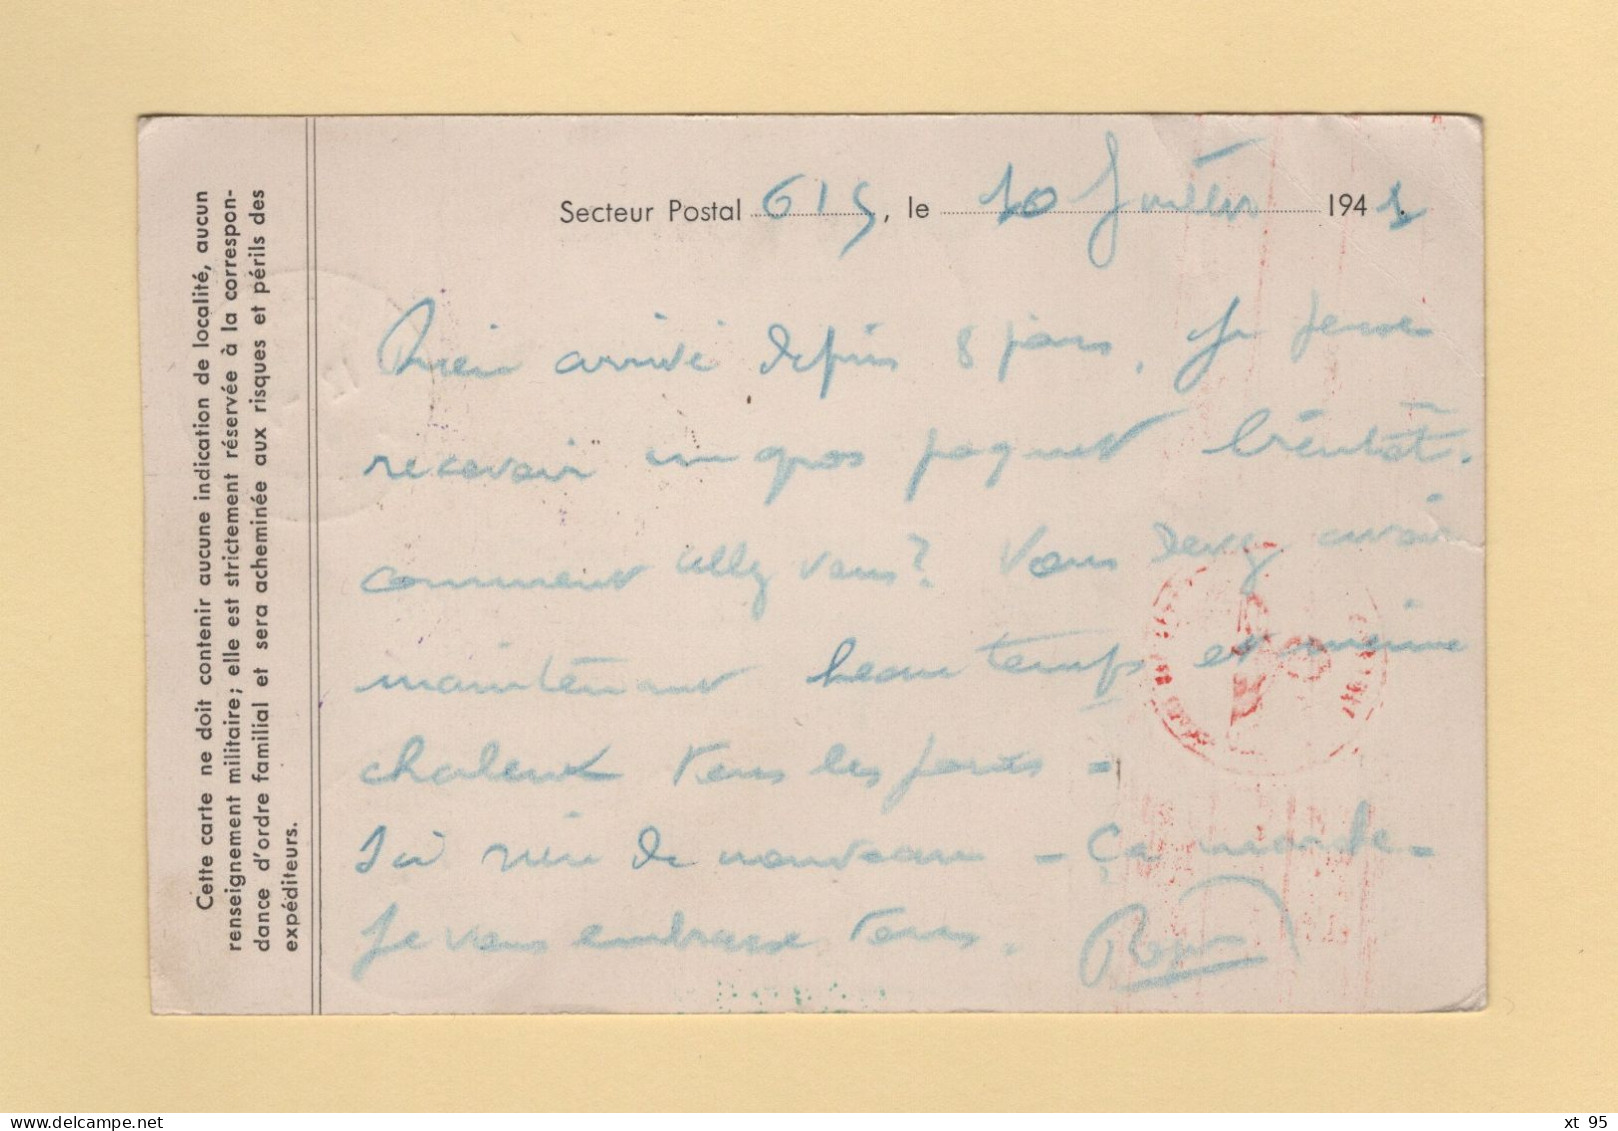 Cette carte ne doit contenir aucune indication de localité, aucun
renseignement militaire; elle est strictement réservée à la correspon-
dance d'ordre familial et sera acheminée aux risques et périls des
expéditeurs.
Secteur Postal 615, le 10 Juillet 1941.
Rien arrivé depuis 8 jours. Je pense
recevoir un gros paquet bientôt.
comment allez vous? Vous devez avoir
maintenant beau temps et même
chaleur tous les jours -
Ici rien de nouveau - Ça marche -
Je vous embrasse tous. Roger
www.delcampe.net
xt_95